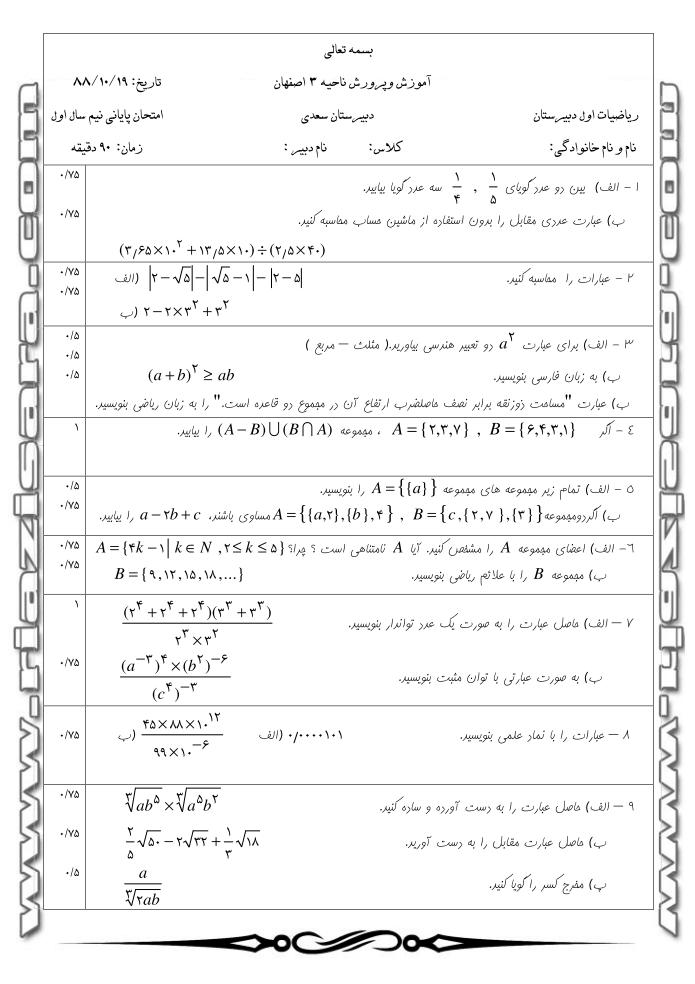 بسمه تعالی
آموزش و پرورش ناحیه ۳ اصفهان تاریخ: ۸۸/۱۰/۱۹
ریاضیات اول دبیرستان دبیرستان سعدی امتحان پایانی نیم سال اول
نام و نام خانوادگی: کلاس: نام دبیر : زمان: ۹۰ دقیقه
۱ – الف) بین دو عدد گویای ۱/۵ , ۱/۴ سه عدد گویا بیابید. ۰/۷۵
ب) عبارت عددی مقابل را بدون استفاده از ماشین حساب محاسبه کنید. ۰/۷۵
(۳٫۶۵×۱۰^۲ + ۱۳٫۵×۱۰) ÷ (۲٫۵×۴۰)
۲ – عبارات را محاسبه کنید. الف) |۲−√۵|−|√۵−۱|−|۲−۵| ۰/۷۵
ب) ۲−۲×۳^۲+۳^۲ ۰/۷۵
۳ – الف) برای عبارت a^۲ دو تعبیر هندسی بیاورید.( مثلث – مربع ) ۰/۵
ب) به زبان فارسی بنویسید. (a+b)^۲ ≥ ab ۰/۵
پ) عبارت "مساحت ذوزنقه برابر نصف حاصلضرب ارتفاع آن در مجموع دو قاعده است." را به زبان ریاضی بنویسید. ۰/۵
۴ – اگر B={۶,۴,۳,۱} , A={۲,۳,۷} ، مجموعه (A−B)∪(B∩A) را بیابید. ۱
۵ – الف) تمام زیر مجموعه های مجموعه A={{a}} را بنویسید. ۰/۵
ب) اگر دو مجموعه A={{a,۲},{b},۴} , B={c,{۲,۷},{۳}} مساوی باشند، a−۲b+c را بیابید. ۰/۷۵
۶– الف) اعضای مجموعه A را مشخص کنید. آیا A نامتناهی است ؟ چرا؟ A={۴k−۱| k∈N ,۲≤k≤۵} ۰/۷۵
ب) مجموعه B را با علائم ریاضی بنویسید. B={۹,۱۲,۱۵,۱۸,...} ۰/۷۵
۷ – الف) حاصل عبارت را به صورت یک عدد تواندار بنویسید. (۲^۴+۲^۴+۲^۴)(۳^۳+۳^۳) / ۲^۳×۳^۲ ۱
ب) به صورت عبارتی با توان مثبت بنویسید. (a^−۳)^۴×(b^۲)^−۶ / (c^۴)^−۳ ۰/۷۵
۸ – عبارات را با نماد علمی بنویسید. الف) ۰/۰۰۰۰۱۰۱ ب) ۴۵×۸۸×۱۰^۱۲ / ۹۹×۱۰^−۶ ۰/۷۵
۹ – الف) حاصل عبارت را به دست آورده و ساده کنید. ∛(ab^۵) × ∛(a^۵b^۲) ۰/۷۵
ب) حاصل عبارت مقابل را به دست آورید. ۲/۵√۵۰ − ۲√۳۲ + ۱/۳√۱۸ ۰/۷۵
پ) مخرج کسر را گویا کنید. a / ∛(۲ab) ۰/۵
www.riazisara.com
www.riazisara.com